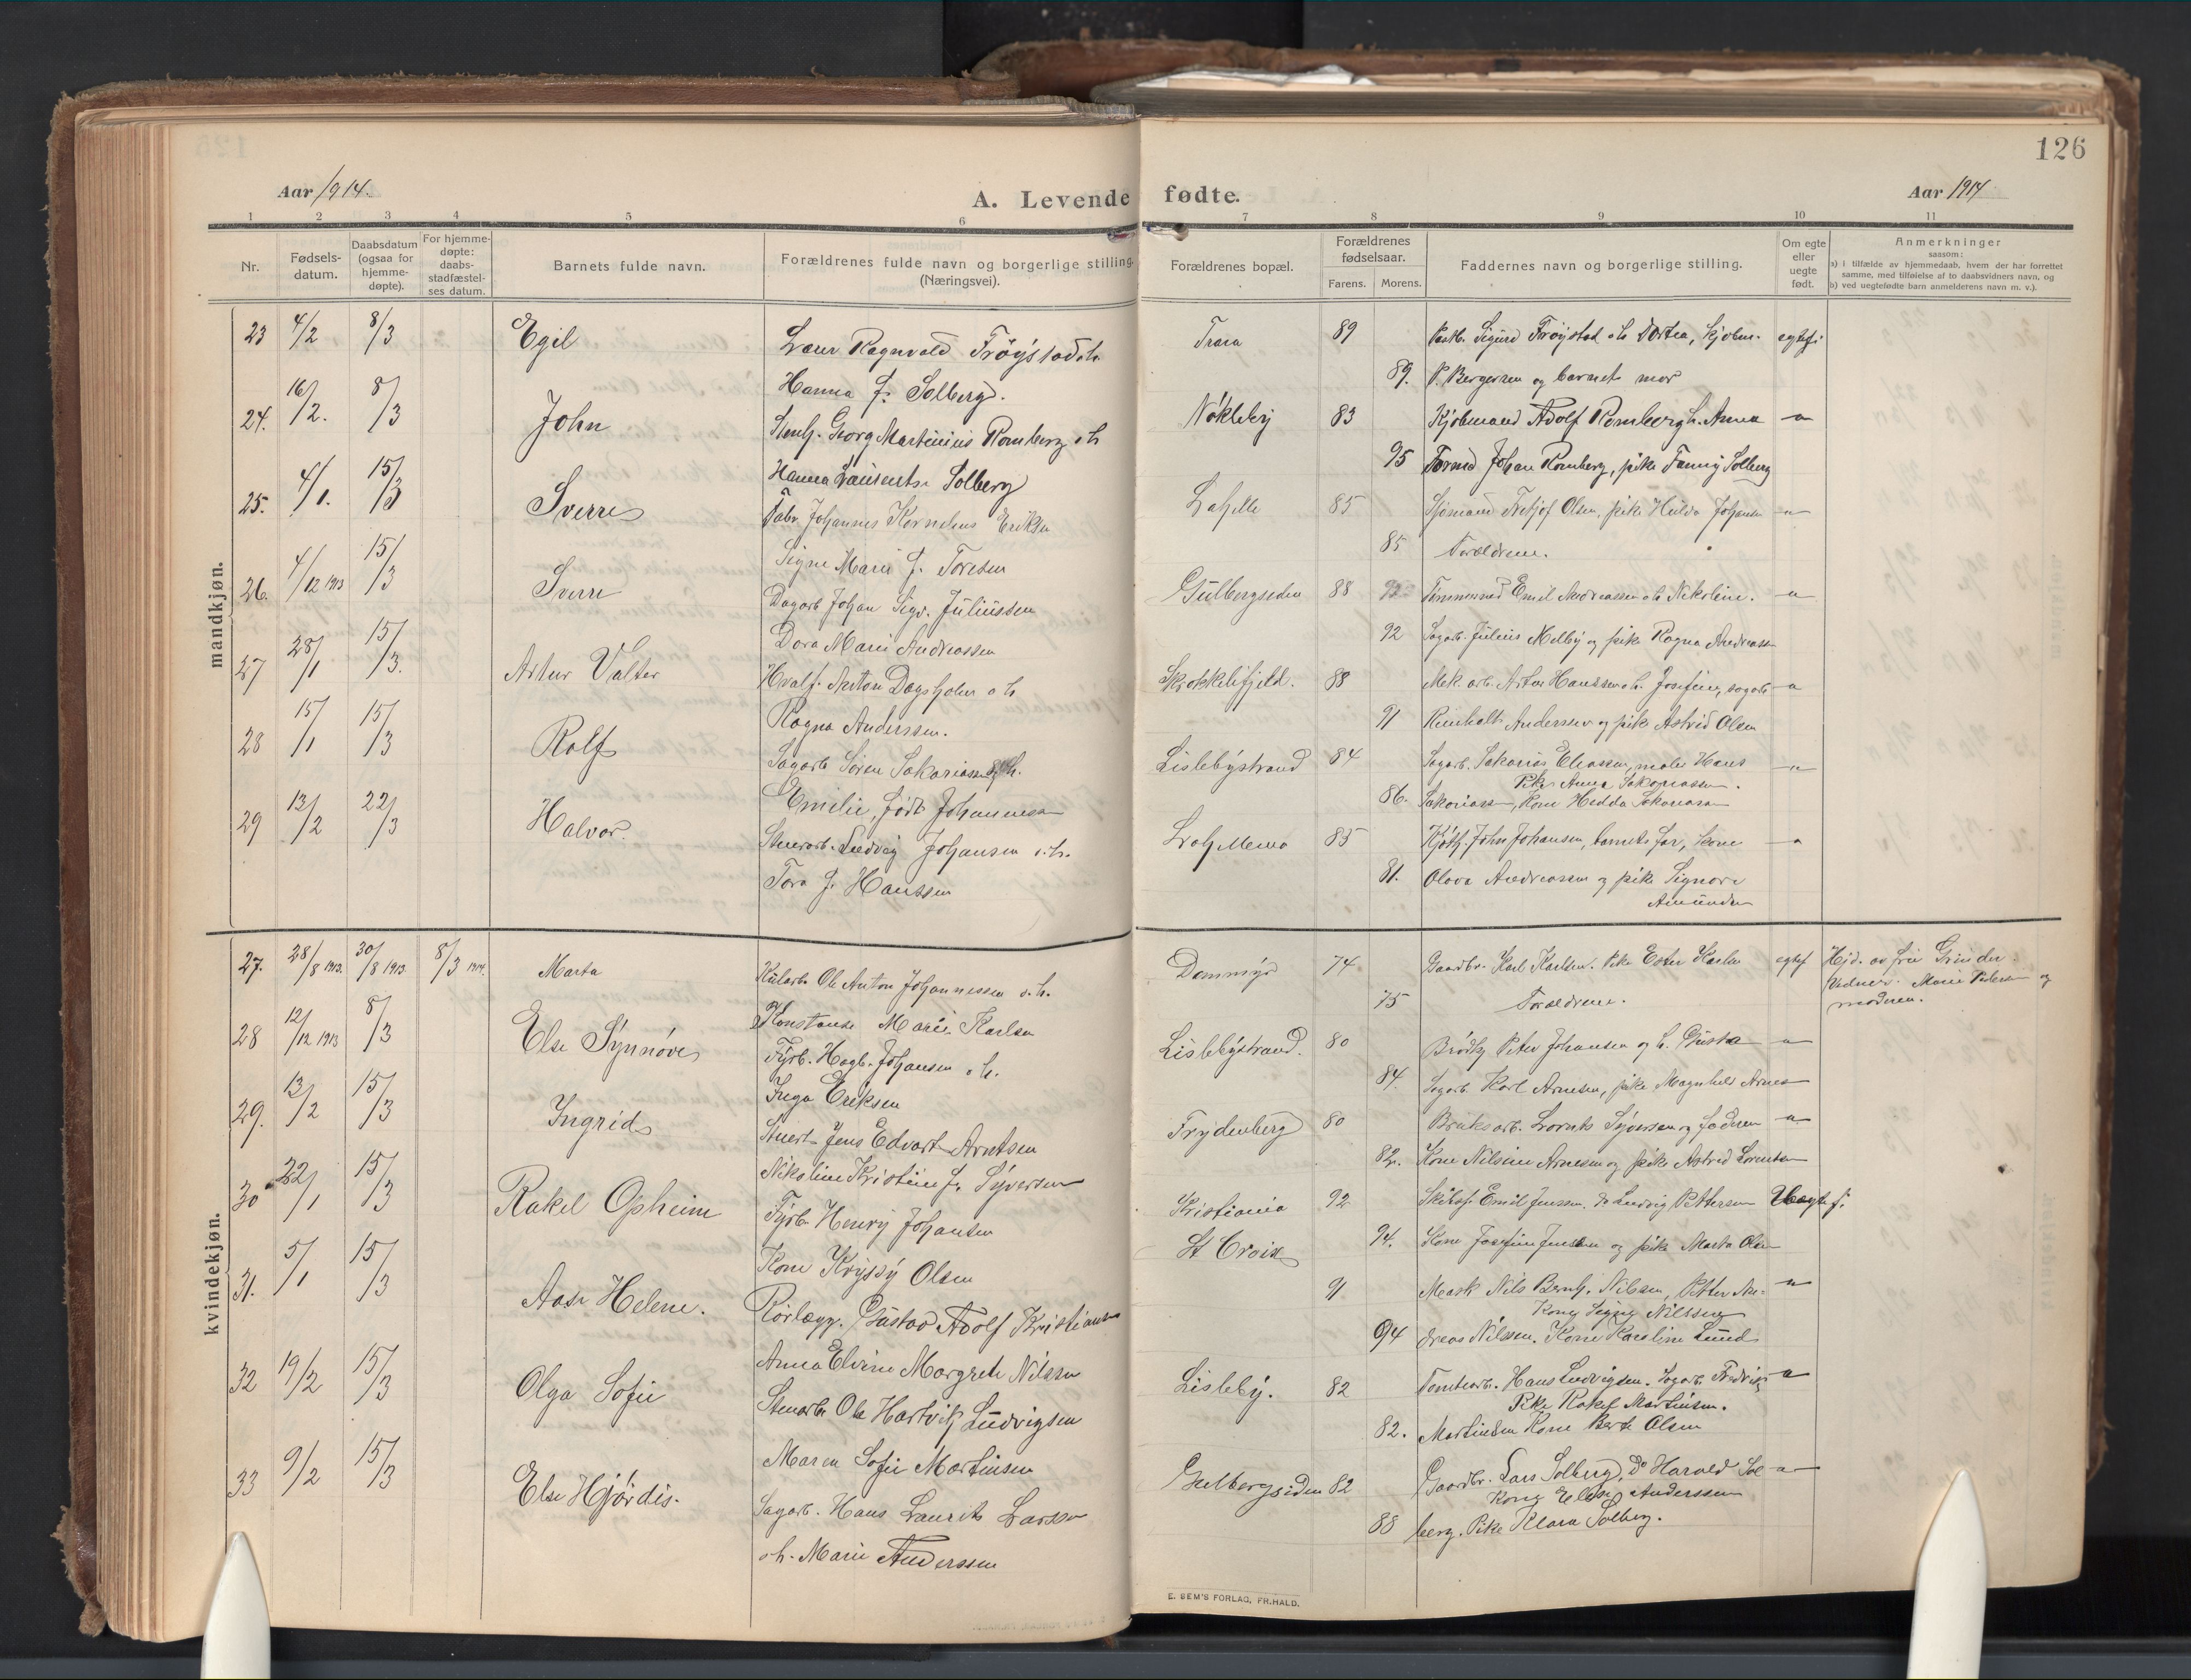 126
Aar 1914.
A. Levende fødte.
Aar 1914
1 2 3 4 5 6 7 8 9 10 11
Nr.
Fødsels-
datum.
Daabsdatum
(ogsaa for
hjemme-
døpte).
For hjemme-
døpte:
daabs-
stadfæstel-
ses datum.
Barnets fulde navn.
Forældrenes fulde navn og borgerlige stilling
(Næringsvei).
Forældrenes bopæl.
Forældrenes
fødselsaar.
Farens. Morens.
Faddernes navn og borgerlige stilling.
Om egte
eller
uegte
født.
Anmerkninger
saasom:
a) i tilfælde av hjemmedaab, hvem der har forrettet
samme, med tilføielse af to daabsvidners navn, og
b) ved uegtefødte barn anmelderens navn m. v.).
mandkjøn.
23 4/2 8/3 Egil Lærer Ragnvald Frøystad o h Trara 89 Sigurd Frøystad o h Dortea, Kjøbm. egtef.
Hanna f. Solberg. 89. P. Bergersen og barnets mor
24. 16/2. 8/3 John Stenh. Georg Martinius Romberg o h Nøkleby 83 Kjøbmand Adolf Romberg h. Anna "
Hanna Laurentse Solberg 95 Formd Johan Romberg, pike Fanny Solberg
25. 4/1. 15/3 Sverre Fabr. Johannes Kornelius Eriksen Lahelle 85 Sjømand Fretjof Olsen, pike Hulda Johansen "
Signe Marie f. Toresen 85 Forældrene.
26. 4/12 1913 15/3 Sverre Dagarb Johan Sigv. Juliussen Gulbergsiden 88 Tømmermd Emil Andreassen o h Nikoline. "
Dora Marie Andreassen 92 Sagarb. Julius Melby og pike Ragna Andreassen
27 28/1 15/3. Artur Valter Hvalf. Anton Dagsholm o h Skrokkelifjeld. 88 Mek. arb. Artur Hanssen o h. Josefine, sagarb "
Ragna Anderssen. 91 Reinholt Anderssen og pike Astrid Olsen
28 15/1 15/3 Rolf Sagarb Søren Sakariassen o h. Lislebystrand 84 Sagarb. Sakarias Eliassen, maler Hans "
Pike Anna Sakariassen.
Emilie, født Johannessen 86. Sakariassen, Kone Hedda Sakariassen
29 13/2 22/3 Halvor. Stenarb. Ludvig Johansen o. h. Lahellemoa 85 John Johansen, barnets far, kone "
Tora f. Hanssen 81. Olava Andreassen og pike Signora
Amundsen
kvindekjøn.
27. 28/8 1913. 30/8 1913. 8/3 1914. Marta Kularb Ole Anton Johannessen o. h. Dammyr 74 Gaardbr. Karl Karlsen. Pike Ester Karlsen egtef Hjd. av fru Grinder
Vidner. Marie Pedersen og
Konstanse Marie Karlsen 75 Forældrene. moderen.
28 12/12 1913 8/3 Else Synnøve Fyrb. Hagb. Johansen o h. Lislebystrand. 80 Peter Johansen og h. Gusta "
Inga Eriksen 84. Sagarb Karl Arnesen, pike Magnhild Arnesen
29. 13/2 15/3 Ingrid Stuert Jens Edvart Arntsen Frydenberg 80 Bruksarb. Lorents Syversen og faderen "
Nikoline Kristine f. Syversen 82. Kone Nilsine Arnesen og pike Astrid Lorentsen
30 22/1 15/3 Rakel Opheim Fyrb. Henry Johansen Kristiania 92 Emil Jenssen. Do Ludvig Pettersen Uegtef.
Kone Kryssy Olsen St Croix 94. Kone Josefine Jenssen og pike Marta Olsen
31. 5/1 15/3 Aase Helene. Rørlægg. Gustav Adolf Kristiansen 91 Mask Nils Bernh. Nilssen, Petter An- "
Kone Signy Nilssen
Anna Elvine Margrete Nilssen 94 dreas Nilssen. Kone Karoline Lund
32 19/2 15/3 Olga Sofie Stenarb Ole Hartvik Ludvigsen Lisleby. 82 Tomtearb. Hans Ludvigsen. Sagarb. Fredrik "
Pike Rakel Martinsen.
Maren Sofie Martinsen 82. Martinsen Kone Berte Olsen
33 9/2 15/3 Else Hjørdis. Sagarb. Hans Laurits Larssen Gulbergsiden 82 Gaardbr. Lars Solberg, Do Harald Sol "
Kone Elise Anderssen
o h. Marie Anderssen 88 berg. Pike Klara Solberg.
E. SEM'S FORLAG, FR.HALD.